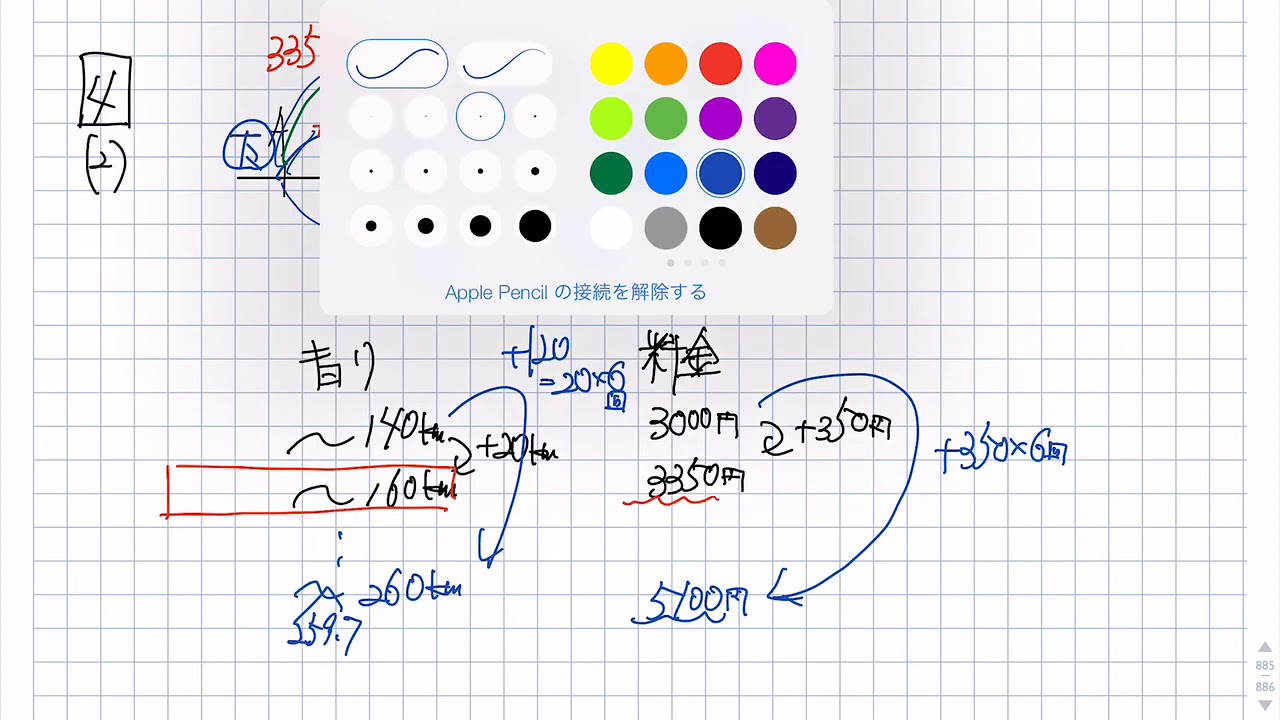 4
(2)
335
Apple Pencil の接続を解除する
料金
+120
=20×6回
~140km
+20km
3000円
+350円
+350×6回
~160km
3350円
~260km
259.7
5100円
885
886